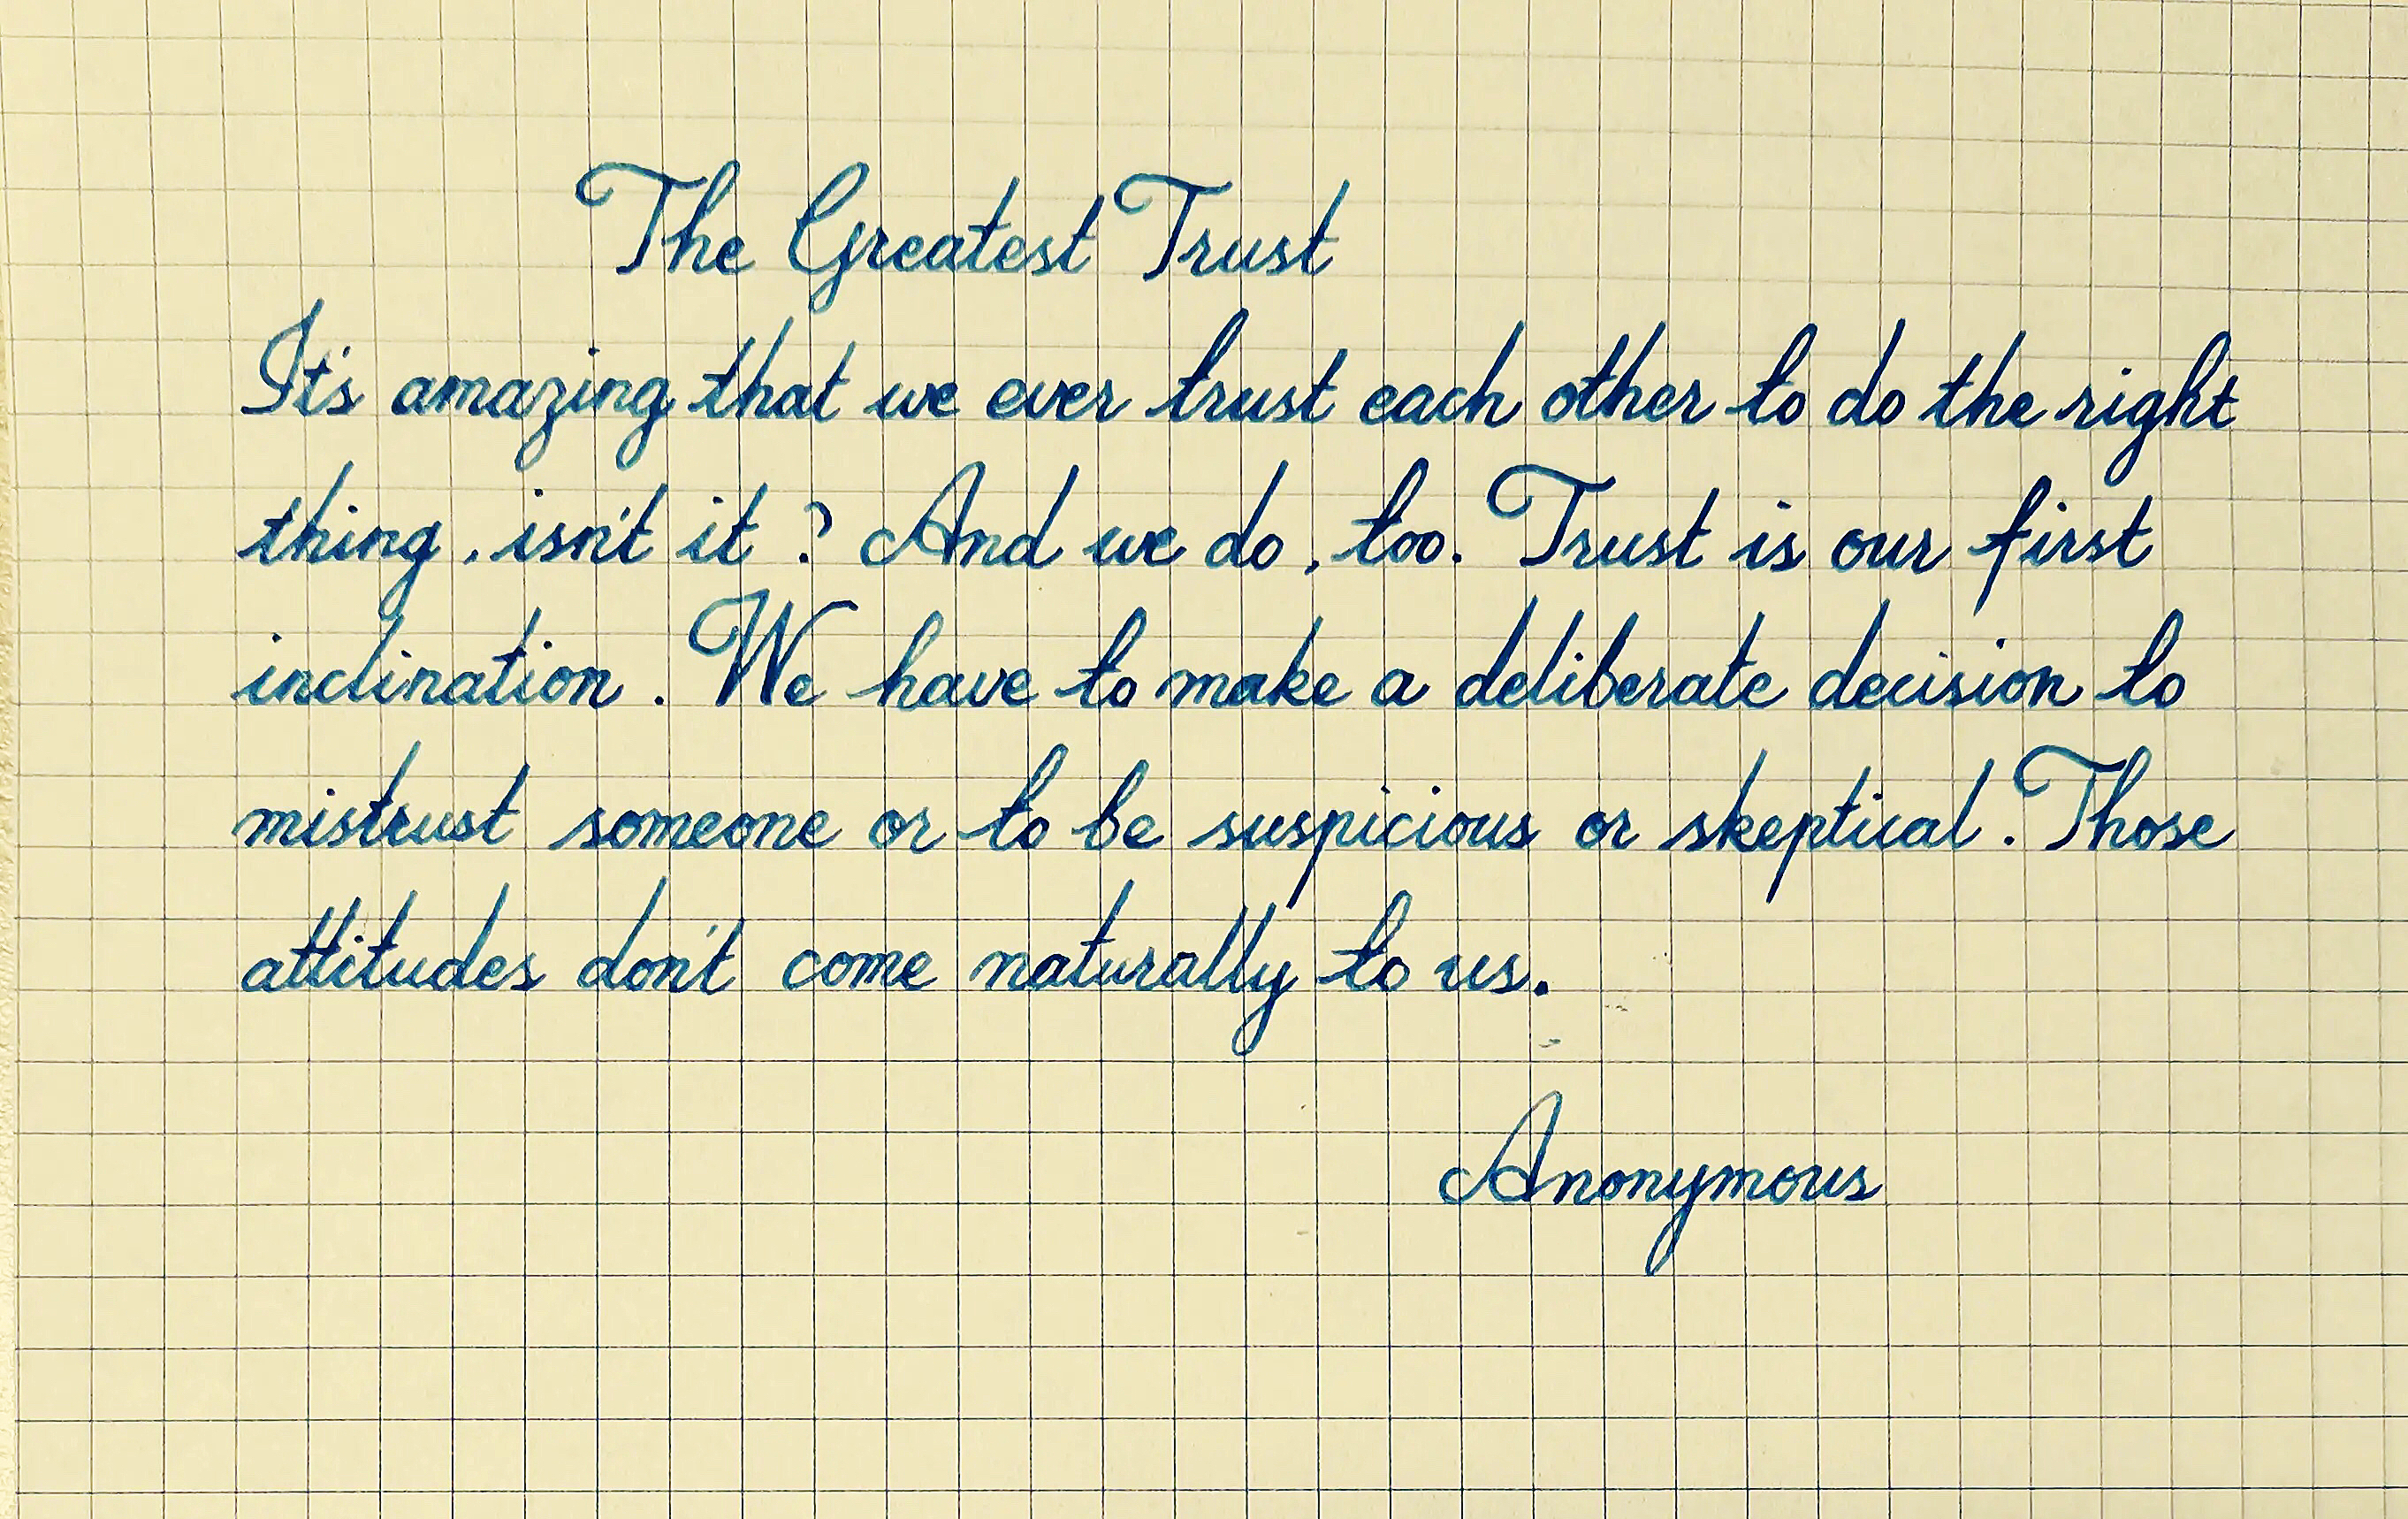 The Greatest Trust
It's amazing that we ever trust each other to do the right
thing, isn't it? And we do, too. Trust is our first
inclination. We have to make a deliberate decision to
mistrust someone or to be suspicious or skeptical. Those
attitudes don't come naturally to us.
Anonymous